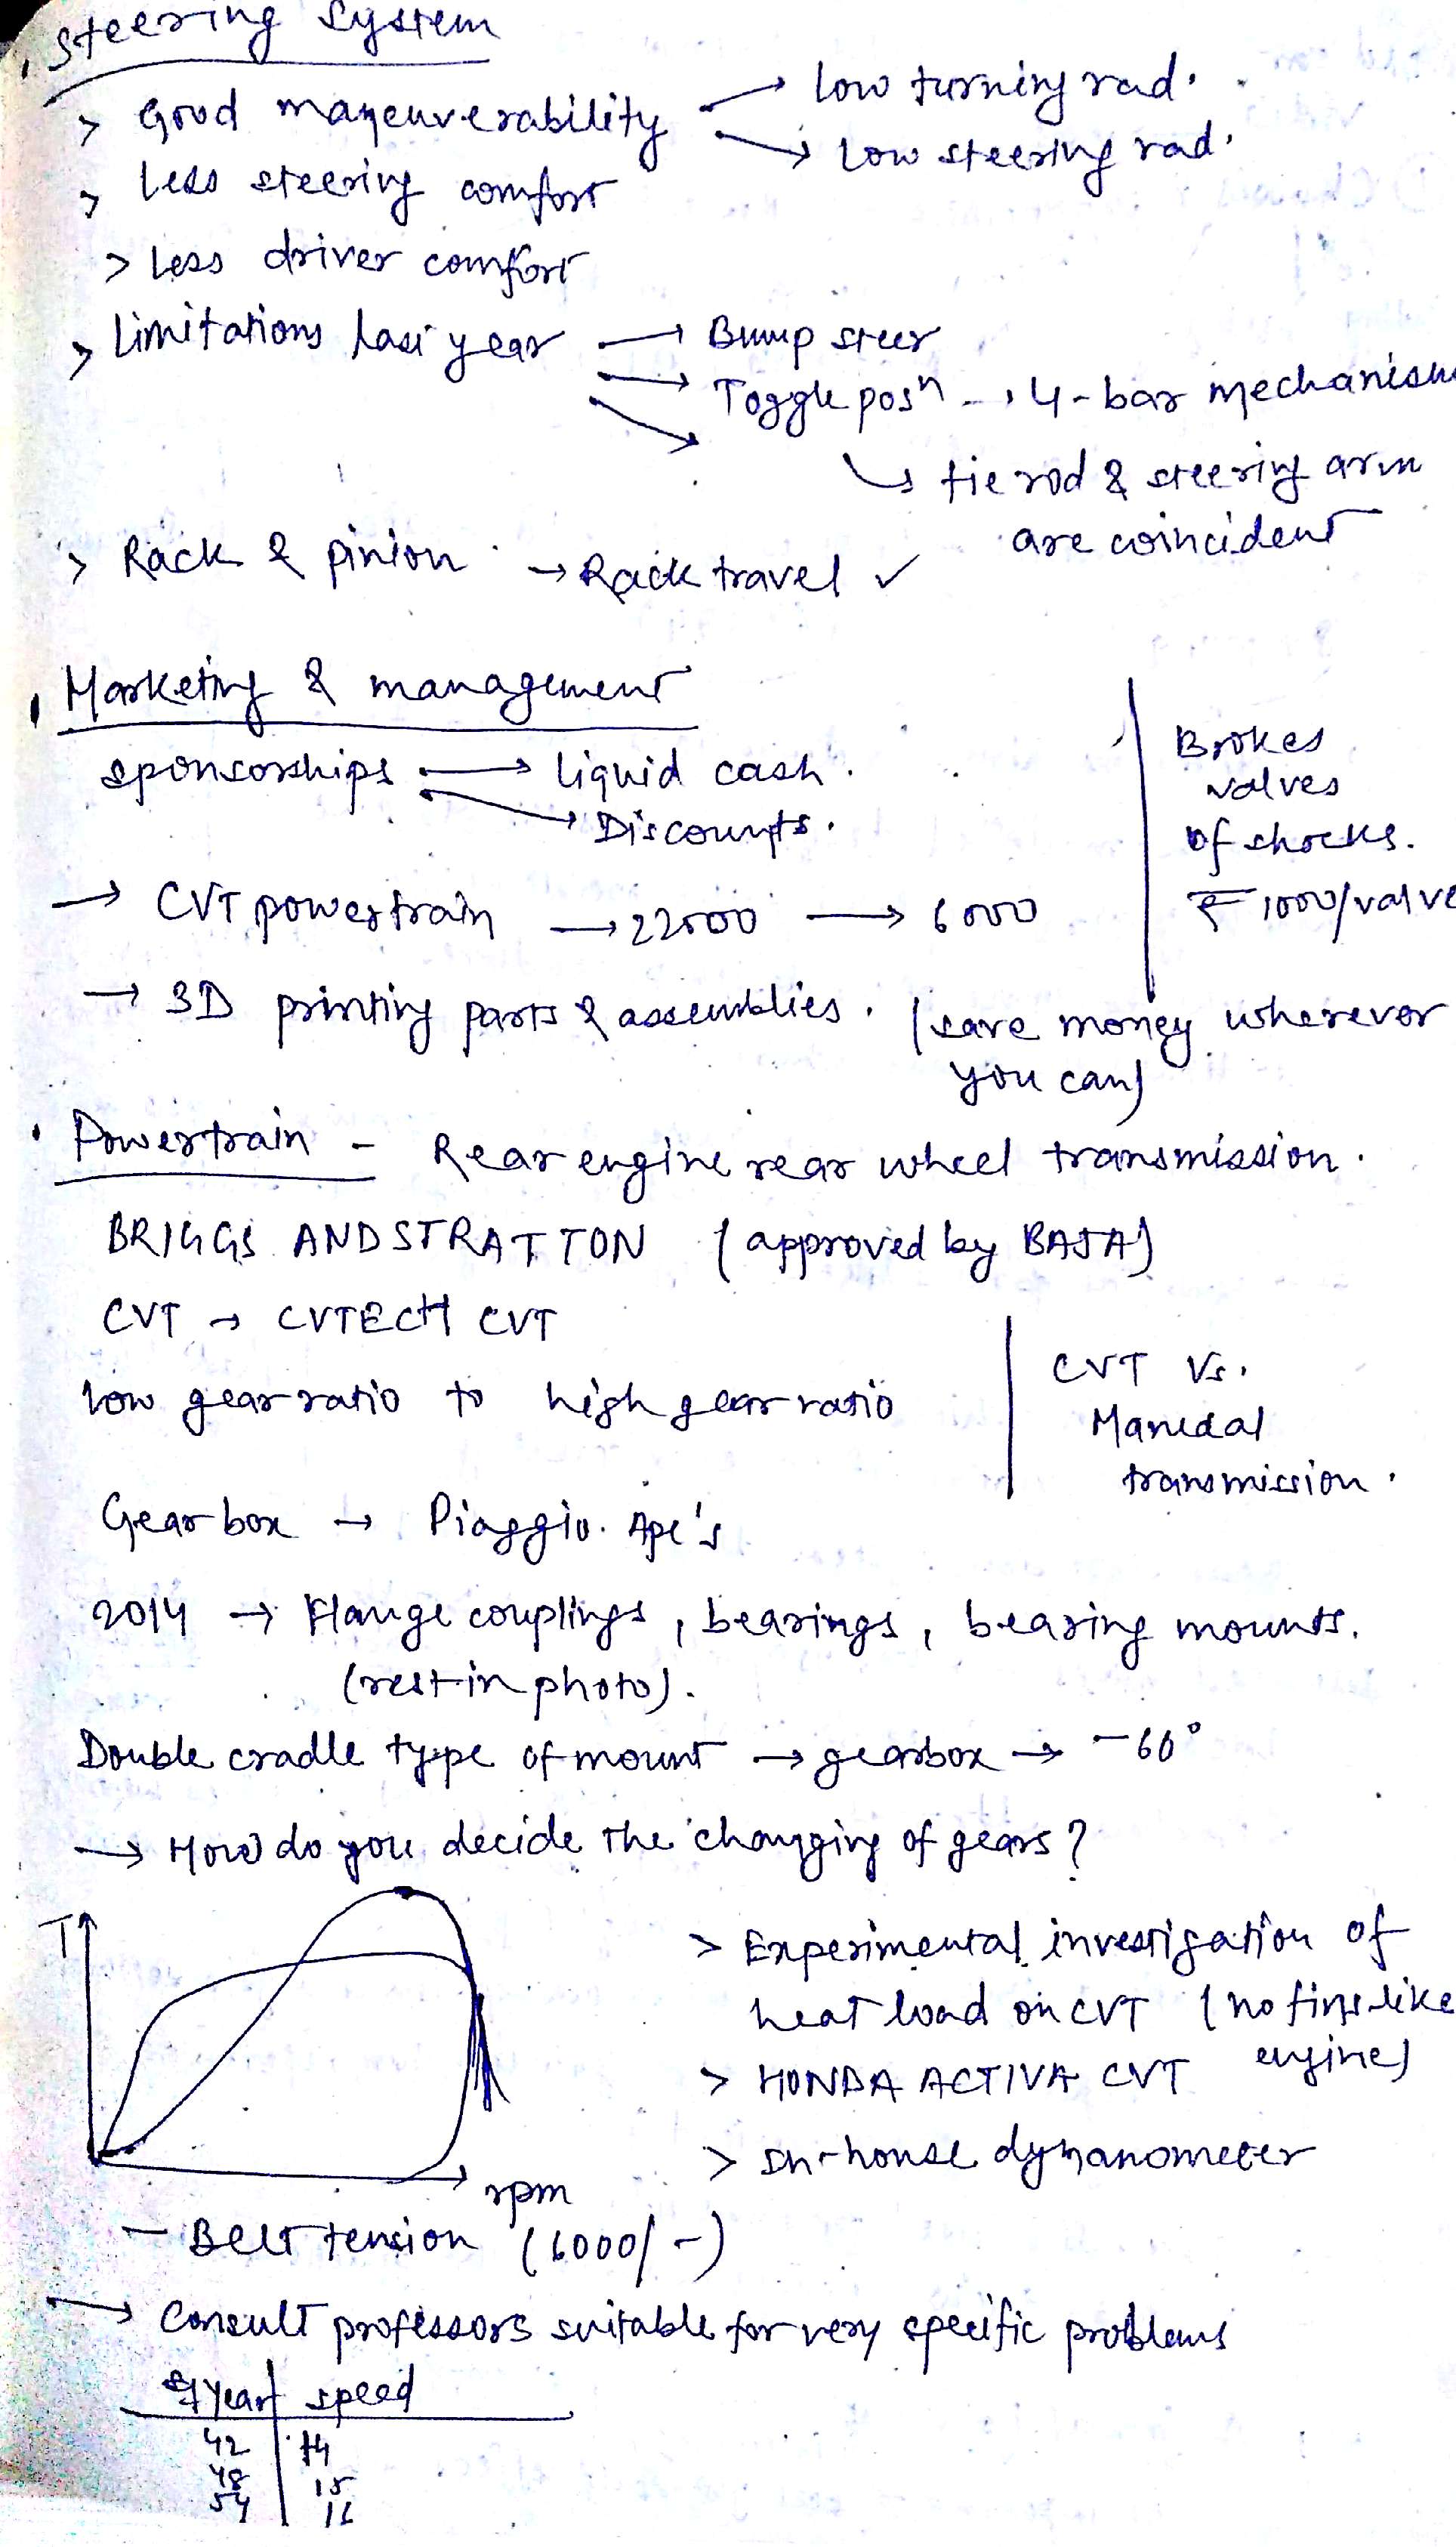 Steering System
> Good mayeuverability → low turning rad.
→ Low steering rad.
> less steering comfort
> less driver comfort
> limitations last year → Bump steer
→ Toggle posⁿ → 4-bar mechanism
→
↳ tie rod & steering arm
are coincident
> Rack & pinion → Rack travel ✓
Marketing & management
sponsorships → liquid cash.
→ Discounts.
Brokes
valves
of shocks.
₹ 1000/valve
→ CVT powertrain → 22000 → 6000
→ 3D printing parts & assemblies. (save money wherever
you can)
Powertrain - Rear engine rear wheel transmission.
BRIGGS AND STRATTON (approved by BAJA)
CVT → CVTECH CVT
low gear ratio to high gear ratio
CVT Vs.
Manual
transmission.
Gear box → Piaggio. Ape's
2014 → Flange couplings, bearings, bearing mounts.
(rest in photo).
Double cradle type of mount → gearbox → -60°
→ How do you decide the changging of gears?
T
rpm
> Experimental investigation of
heat load on CVT (no fins like
engine)
> HONDA ACTIVA CVT
> In-house dynanometer
- Belt tension (6000/-)
→ Consult professors suitable for very specific problems
year speed
42 14
48 15
54 16